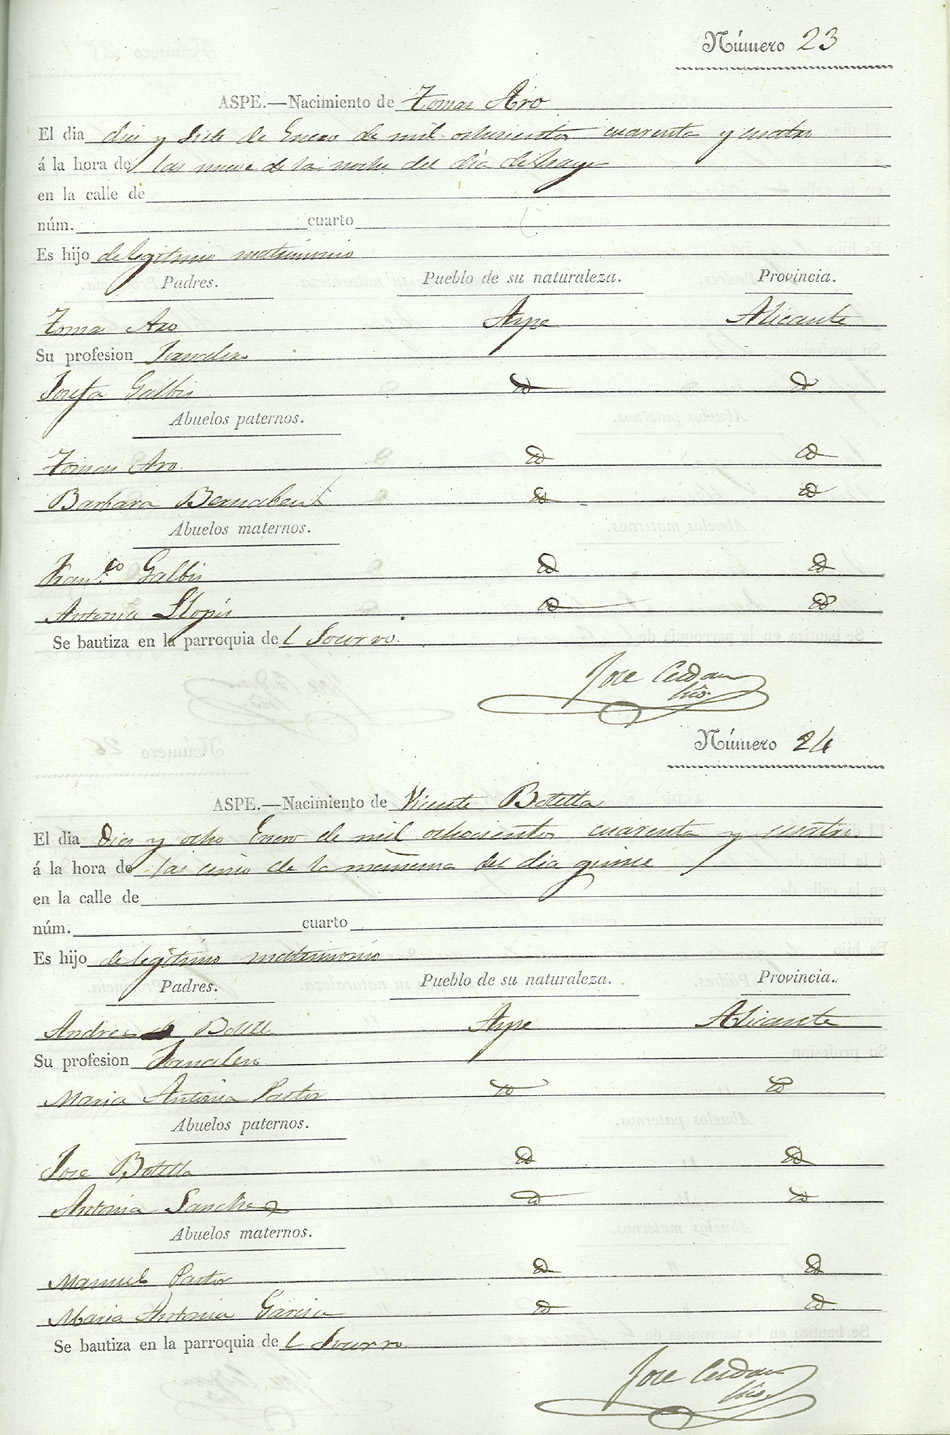 Número 23
ASPE.—Nacimiento de Tomas Aro
El dia diez y siete de Enero de mil ochocientos cuarenta y cuatro
á la hora de las nueve de la noche del dia
en la calle de
núm. cuarto
Es hijo de legitimo matrimonio
Padres. Pueblo de su naturaleza. Provincia.
Tomas Aro Aspe Alicante
Su profesion Jornalero
Josefa Galbis id id
Abuelos paternos.
Tomas Aro id id
Barbara Bernabeu id id
Abuelos maternos.
Fran.co Galbis id id
Antonia Llopis id id
Se bautiza en la parroquia del Socorro.
Jose Cerdan
Srio.
Número 24
ASPE.—Nacimiento de Vicente Botella
El dia Diez y ocho Enero de mil ochocientos cuarenta y cuatro
á la hora de las cinco de la mañana del dia quince
en la calle de
núm. cuarto
Es hijo de legitimo matrimonio
Padres. Pueblo de su naturaleza. Provincia.
Andres Botella Aspe Alicante
Su profesion Jornalero
Maria Antonia Pastor id id
Abuelos paternos.
Jose Botella id id
Antonia Sanchez id id
Abuelos maternos.
Manuel Pastor id id
Maria Antonia Garcia id id
Se bautiza en la parroquia del Socorro
Jose Cerdan
Srio.